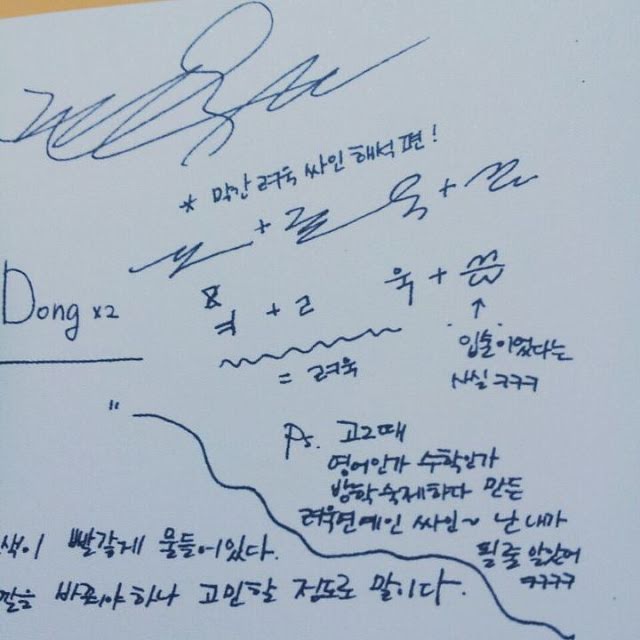 * 막간 려욱 싸인 해석 편!
+ +
Dong x2
+ 욱 +
↑
= 려욱
입술이었다는
사실 ㅋㅋㅋ
"
Ps. 고2때
영어인가 수학인가
방학숙제하다 만든
려욱연예인 싸인~ 난 내가
필줄 알았어
ㅋㅋㅋㅋ
색이 빨갛게 물들어있다.
바로야 하나 고민할 정도로 말이다.